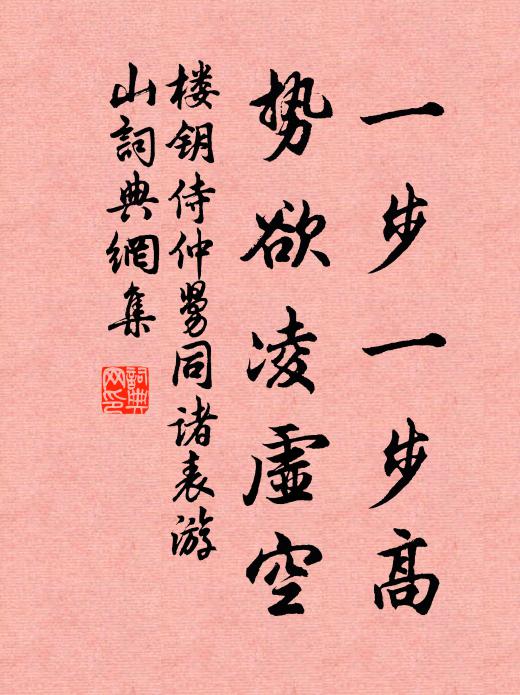 一步一步高
势欲凌虚空
楼钥侍仲舅同诸表游
山詞典網集
詞典
网印